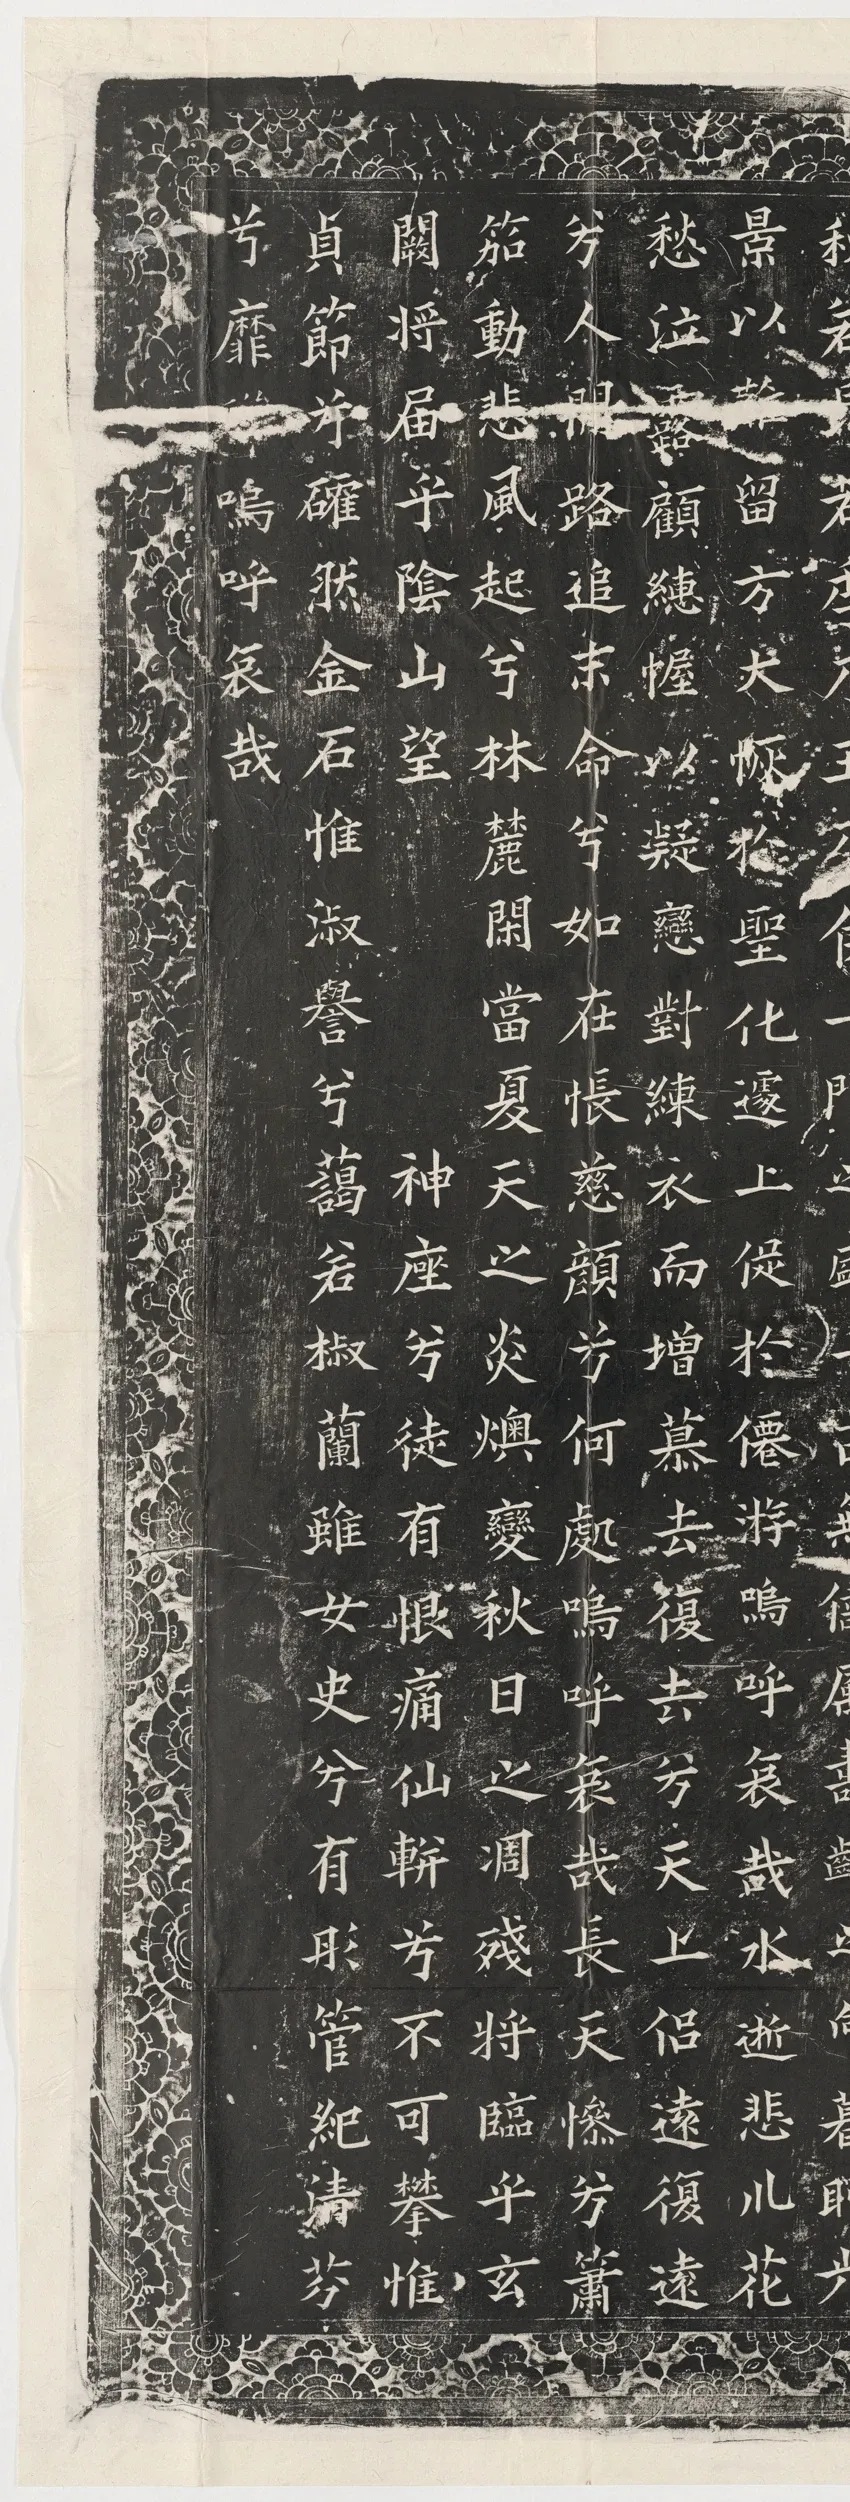 景以難留方大恢於聖化遽上從於僊游嗚呼哀哉水逝悲川花
愁泣露顧繐幄以凝戀對練衣而增慕去復去兮天上侶遠復遠
兮人間路追末命兮如在悵慈顏兮何處嗚呼哀哉長天慘兮簫
笳動悲風起兮林麓閑當夏天之炎燠變秋日之凋殘將臨乎玄
闕將届乎陰山望 神座兮徒有恨痛仙軿兮不可攀惟
貞節兮確然金石惟淑譽兮藹若椒蘭雖女史兮有彤管紀清芬
兮靡嗚呼哀哉